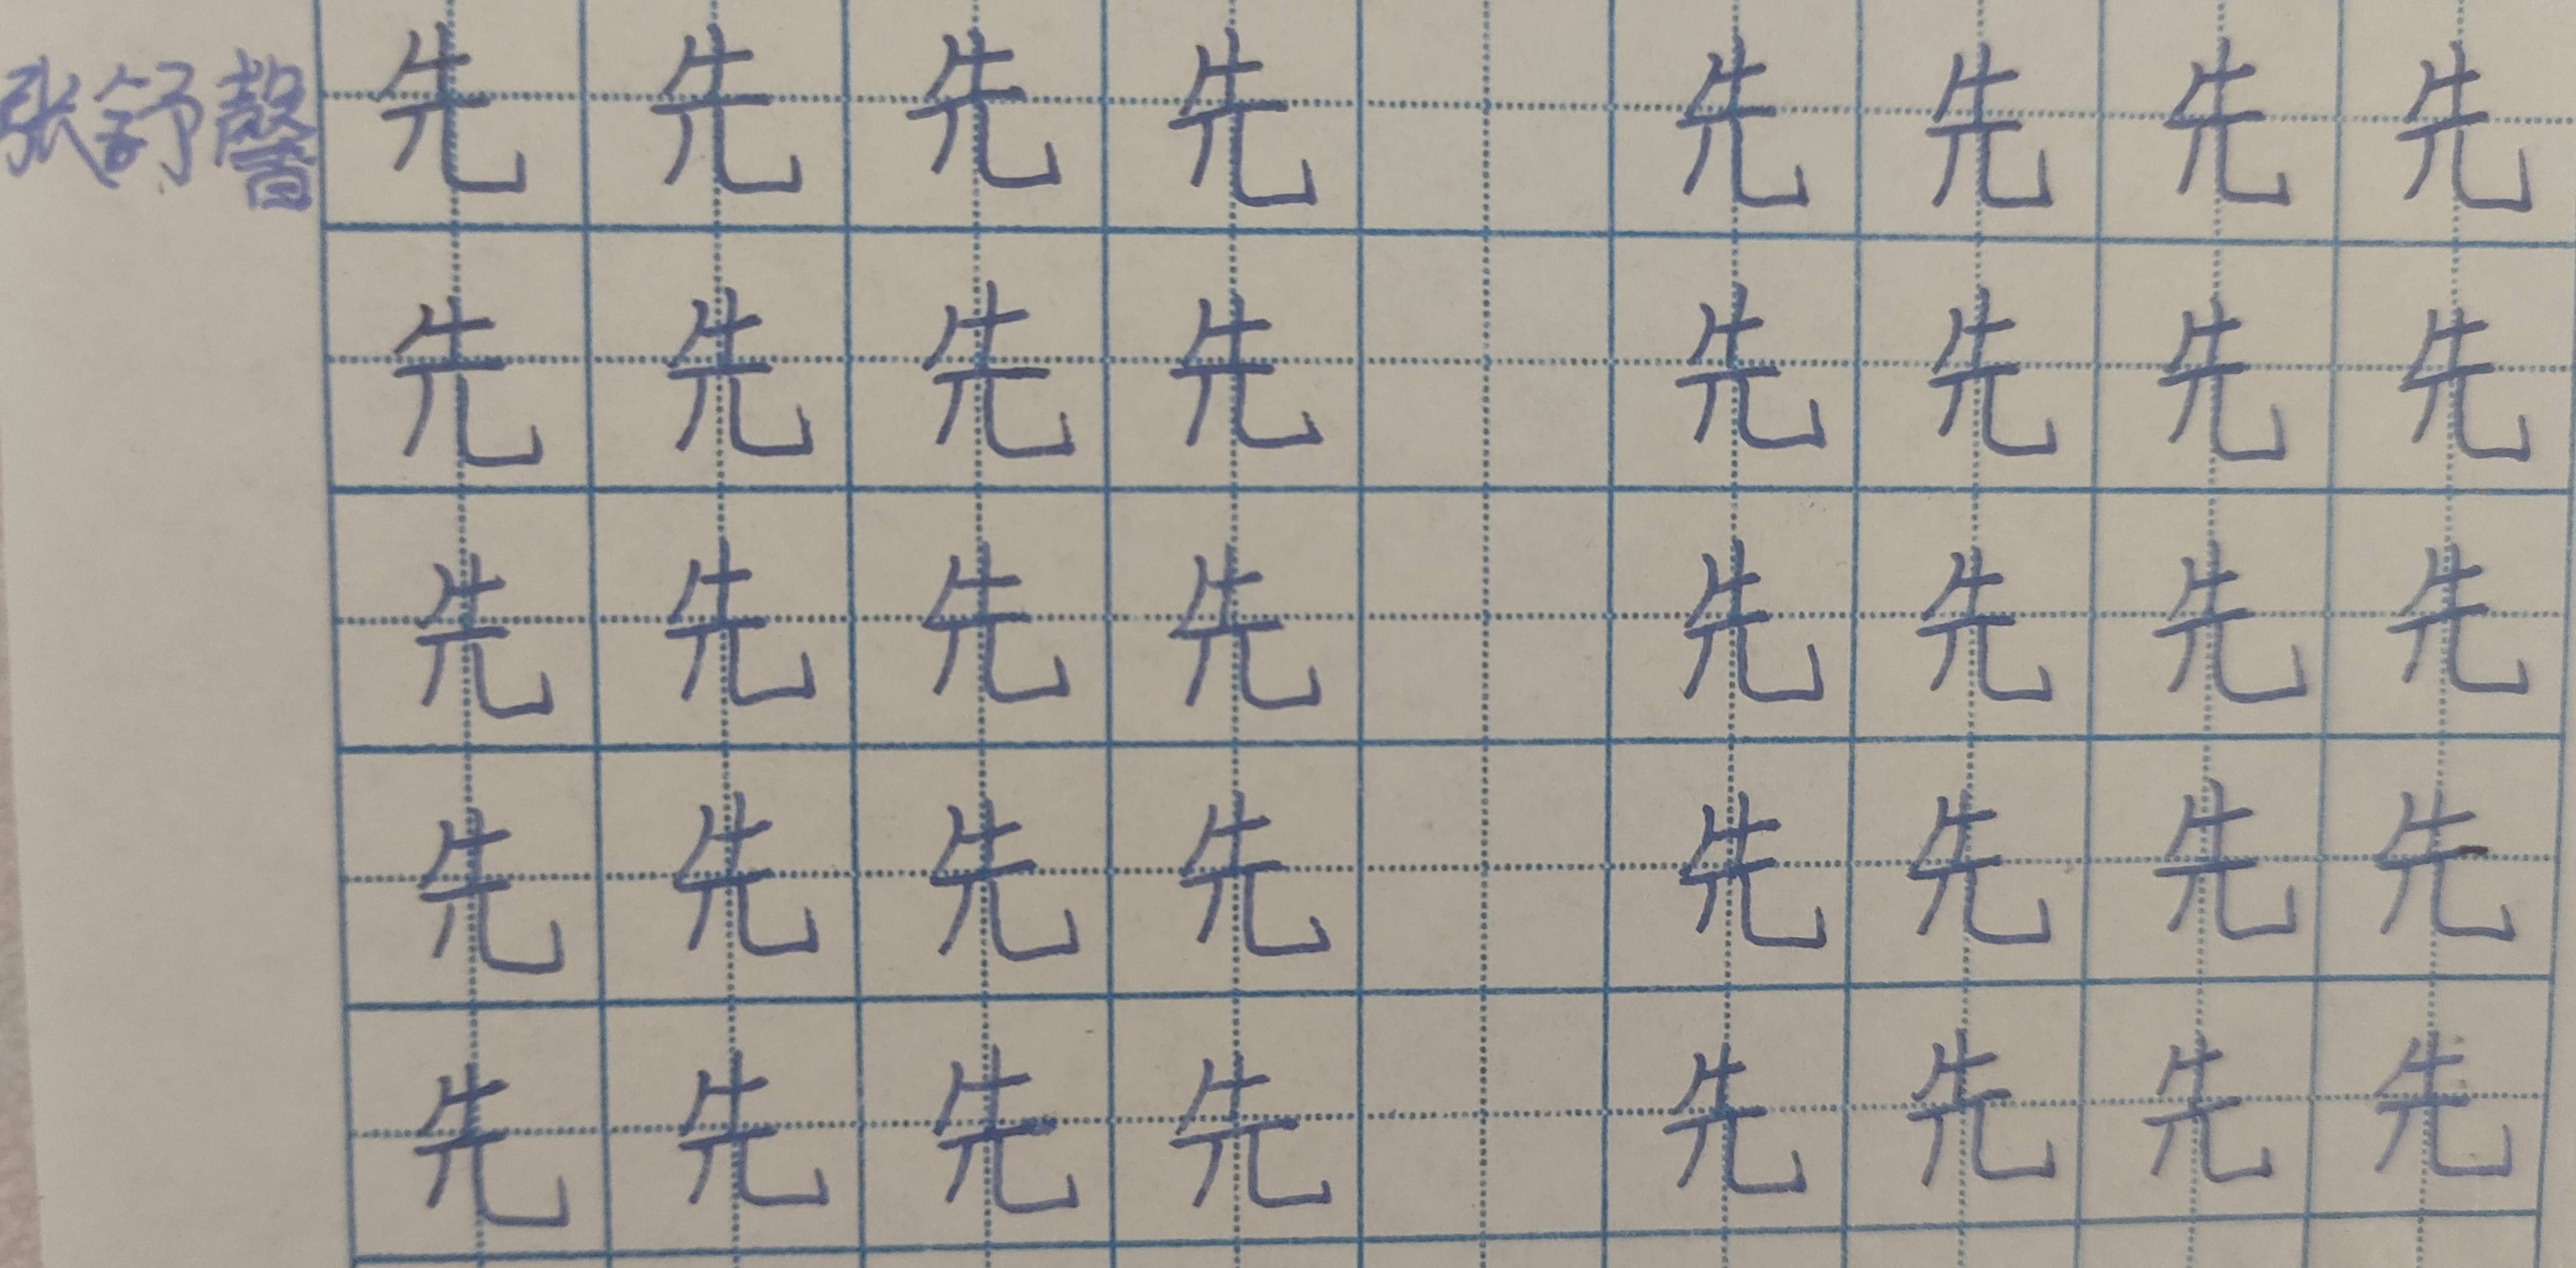 张舒馨
先先先先 先先先先
先先先先 先先先先
先先先先 先先先先
先先先先 先先先先
先先先先 先先先先